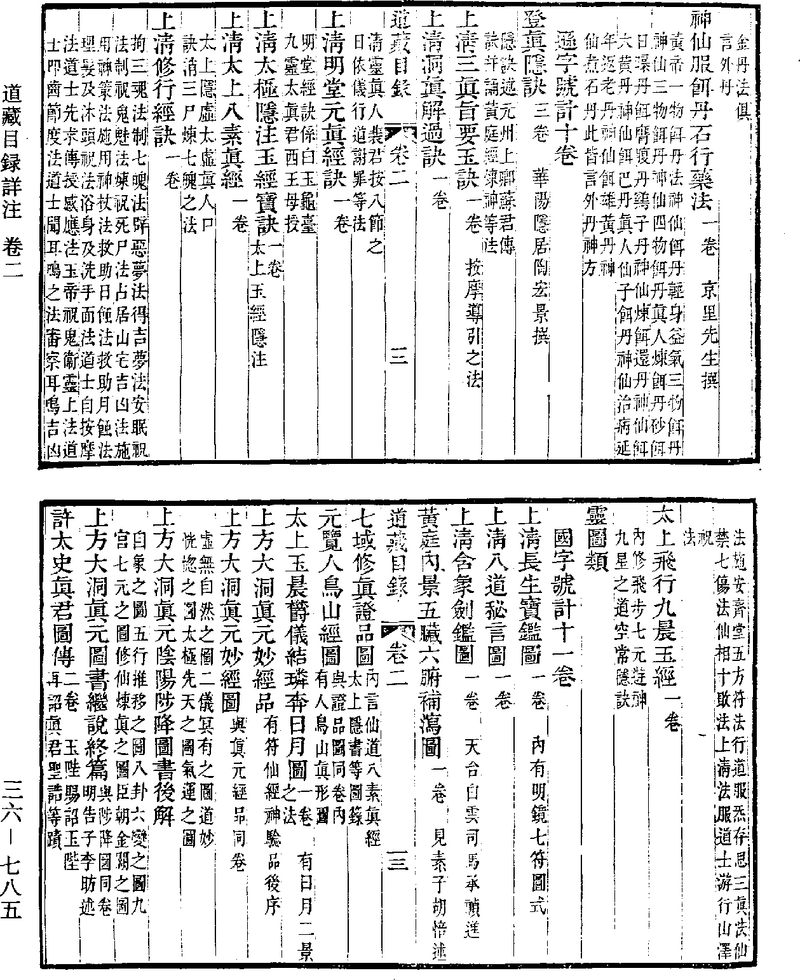 金丹法俱
言外丹
神仙服餌丹石行藥法一卷　京里先生撰
黃帝一物餌丹法神仙餌丹輕身益氣三物餌丹
神仙三物餌丹神仙四物餌丹真人煉餌丹砂餌
日環丹餌膏丹鷄子丹神仙煉餌還丹神仙餌
六黃丹神仙餌巴丹真人仙子餌丹神仙治病延
年返老丹神仙餌雄黃丹神
仙煮石丹此皆言外丹神方
遜字號計十卷
登眞隱訣三卷　華陽隱居陶宏景撰
隱訣述元州上卿蘇君傳
訣詳誦黃庭經煉神等法
上淸三眞旨要玉訣一卷　按摩導引之法
上淸洞眞解過訣一卷
道藏目錄　卷二　三
淸靈眞人裴君按八節之
日依儀行道謝罪等法
上淸明堂元眞經訣一卷
明堂經訣係白玉龜臺
九靈太眞君西王母授
上淸太極隱注玉經寶訣一卷太上玉經隱注
上淸太上八素眞經一卷
太上隱虛太虛眞人口
訣淸三尸煉七魄之法
上淸修行經訣一卷
拘三魂法制七魄法辟惡夢法得吉夢法安眠祝
法制祝鬼魅法煉祝死尸法占居山宅吉凶法施
用神策法施用神杖法救助日蝕法救助月蝕法
理髮及沐頭祝法浴身及洗手面法道士自按摩
法道士先求傳授感應法玉帝祝鬼衛靈上法道
士叩齒節度法道士聞耳鳴之法審察耳鳴吉凶
道藏目録詳注　卷二
法施安齋堂五方符法行道服炁存思三眞法仙
禁七傷法仙相十敗法上淸法服道士游行山澤
祝
法
太上飛行九晨玉經一卷
內修飛步七元
九星之道空常隱訣
靈圖類
國字號計十一卷
上淸長生寶鑑圖一卷　內有明鏡七符圖式
上淸八道秘言圖一卷
上淸含象劍鑑圖一卷　天台白雲司馬承禎進
黃庭內景五臟六腑補瀉圖一卷　見素子胡愔述
道藏目錄　卷二　一三
七域修眞證品圖內言仙道八素眞經
太上隱書等圖籙
元覽人鳥山經圖與證品圖同卷內
有人鳥山眞形圖
太上玉晨欝儀結璘奔日月圖一卷　有日月二景
之法
上方大洞眞元妙經品有符仙經神驗品後序
上方大洞眞元妙經圖與眞元經品同卷
虛無自然之圖二儀冥有之圖道妙
恍惚之圖太極先天之圖氣運之圖
上方大洞眞元陰陽陟降圖書後解
自象之圖五行推移之圖八卦六變之圖九
宮七元之圖修仙煉眞之圖臣朝金闕之圖
上方大洞眞元圖書繼說終篇與陟降圖同卷
明告子李昉述
許太史眞君圖傳二卷　玉陛賜詔玉陛
再詔眞君聖誥等蹟
三六—七八五